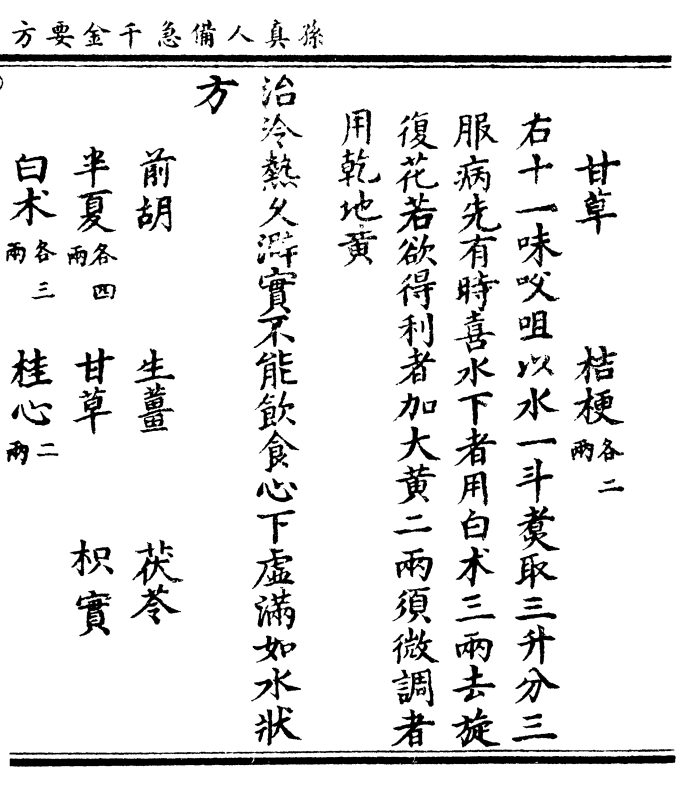 孫真人備急千金要方
甘草　桔梗各二兩
右十一味㕮咀以水一斗煑取三升分三
服病先有時喜水下者用白朮三兩去旋
復花若欲得利者加大黄二兩須微調者
用乾地黄
治冷熱久澼實不能飲食心下虛滿如水狀
方
前胡　生薑　茯苓
半夏各四兩　甘草　枳實
白朮各三兩　桂心二兩